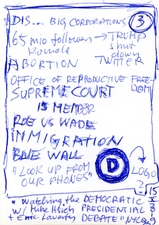 DIS... BIG CORPORATIONS
3
65 mio followers → TRUMP'S
Romale
shut down
TWITTER
ABORTION
OFFICE OF REPRODUCTIVE FREEDOM
SUPREME COURT
15 MEMBER
ROE VS WADE
IMMIGRATION
BLUE WALL
"LOOK UP FROM OUR PHONES"
D
LOGO
15
X
2019
"Watching the DEMOCRATIC
W/ Mike Hnich PRESIDENTIAL
+ Eric Laverty DEBATE" NYC